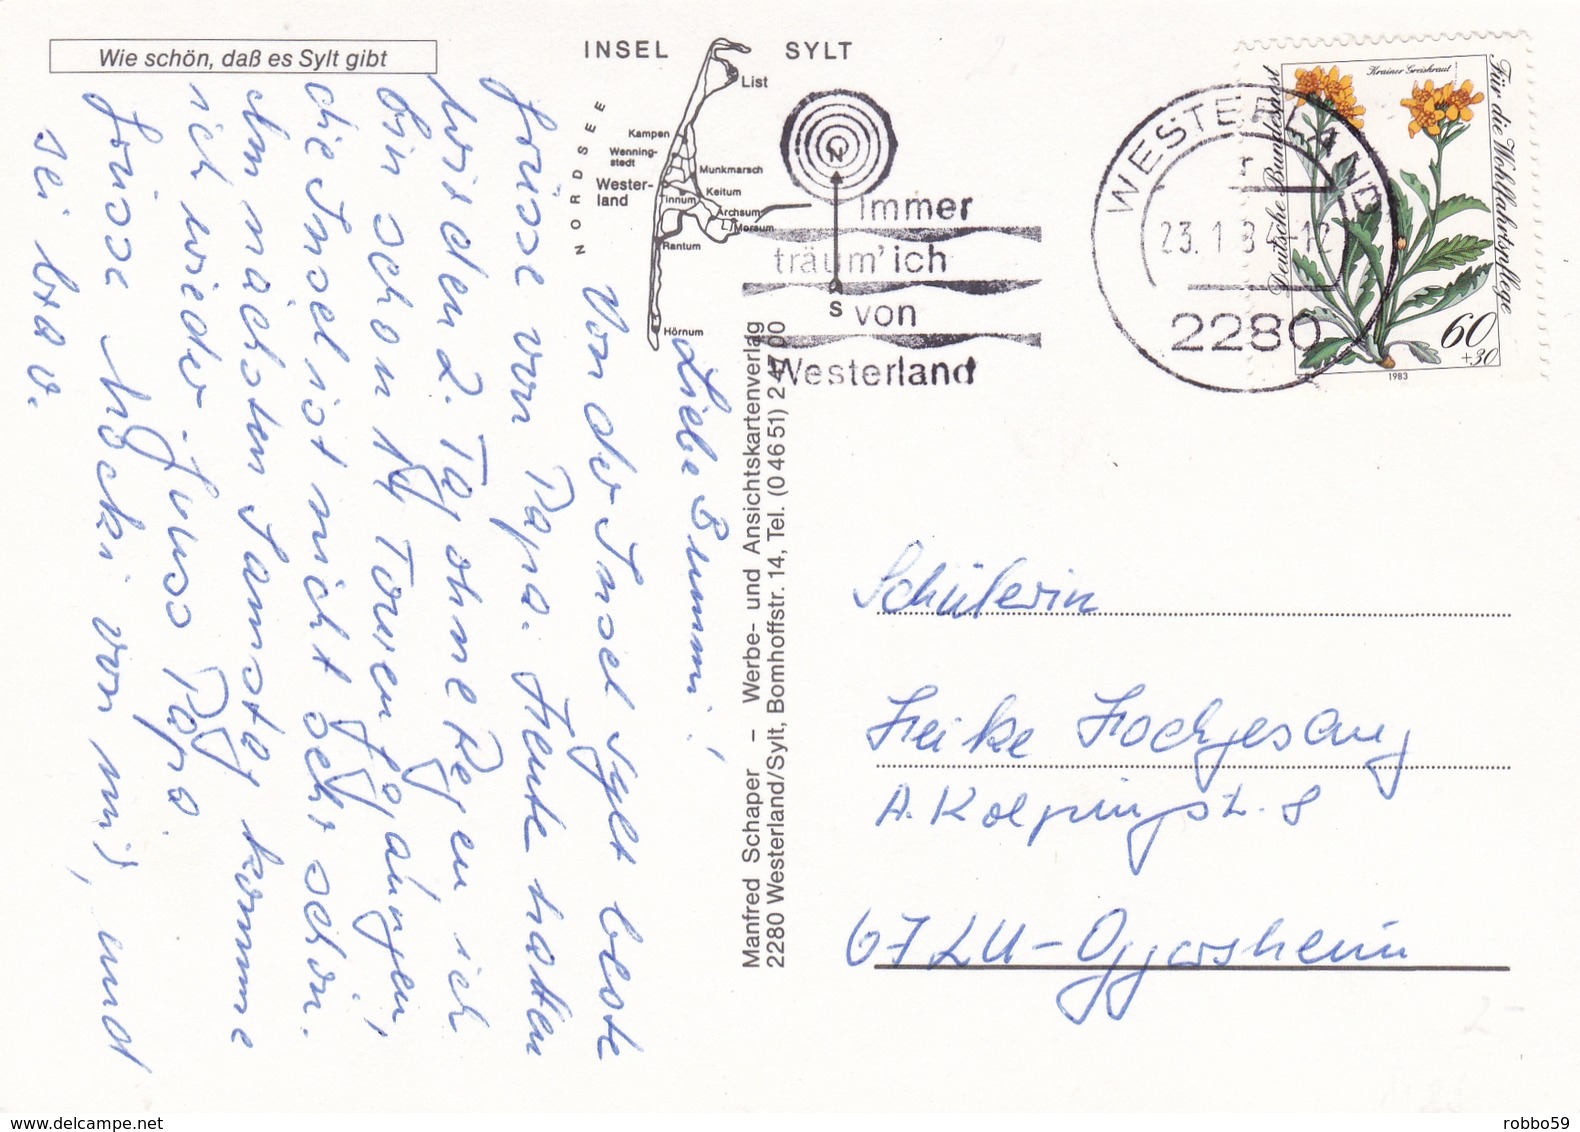 Wie schön, daß es Sylt gibt
INSEL SYLT
NORDSEE
List
Kampen
Wenning-
stedt
Munkmarsch
Wester-
land
Keitum
Tinnum
Archsum
Morsum
Rantum
Hörnum
N
S
Immer
träum' ich
von
Westerland
WESTERLAND
23.1.84-12
2280
Deutsche Bundespost
Krainer Greiskraut
Für die Wohlfahrtspflege
60
+30
1983
Liebe Bummi!
Von der Insel Sylt beste
Grüsse von Papa. Heute hatten
wir den 2. Tag ohne Regen ich
bin schon 14 Touren gegangen!
die Insel ist nicht sehr schön.
Am nächsten Samstag komme
ich wieder. Gruss Papa
Grüsse Mücki von mir, und
sei brav.
Manfred Schaper – Werbe- und Ansichtskartenverlag
2280 Westerland/Sylt, Bomhoffstr. 14, Tel. (0 46 51) 2 47 00
Schülerin
Heike Hochgesang
A. Kolpingstr. 8
67 LU-Oggersheim
2-
robbo59